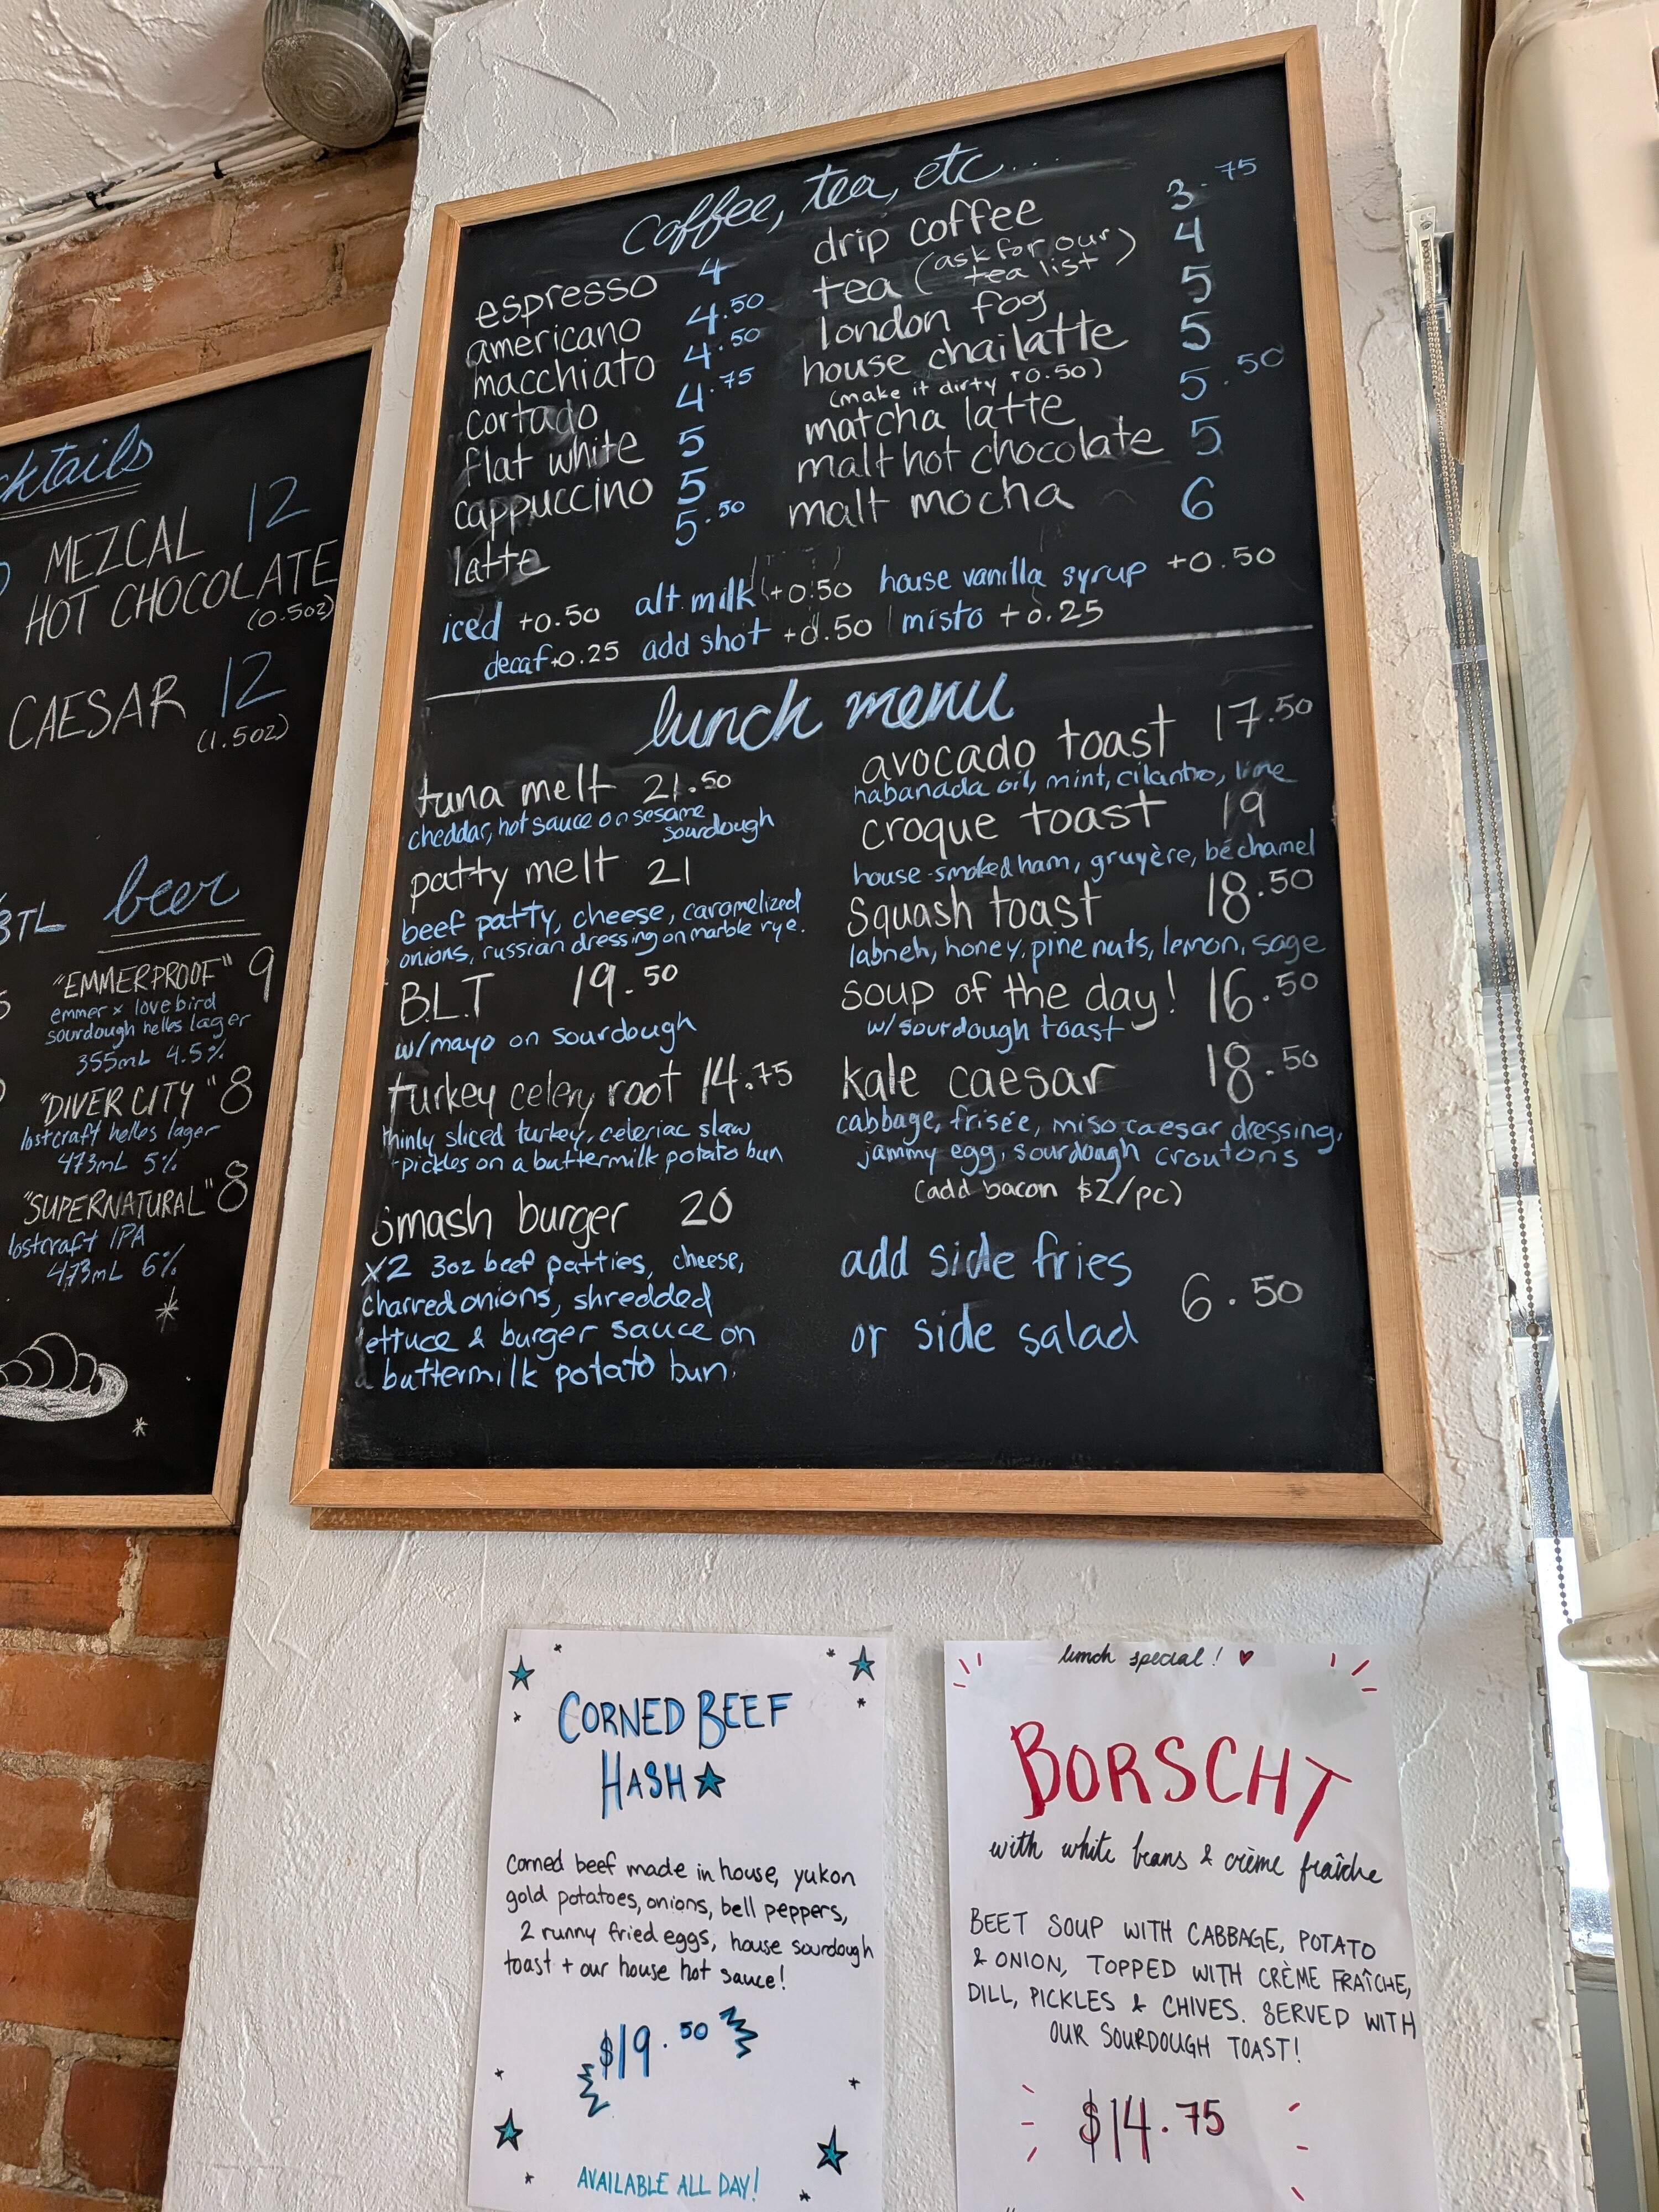 cktails
MEZCAL 12
HOT CHOCOLATE
(0.5oz)
CAESAR 12
(1.5oz)
beer
"EMMERPROOF" 9
emmer x lovebird
sourdough helles lager
355mL 4.5%
"DIVER CITY" 8
lostcraft helles lager
473mL 5%
"SUPERNATURAL" 8
lostcraft IPA
473mL 6%
coffee, tea, etc...
espresso 4
americano 4.50
macchiato 4.50
cortado 4.75
flat white 5
cappuccino 5
latte 5.50
drip coffee 3.75
tea (ask for our tea list) 4
london fog 5
house chai latte 5
(make it dirty +0.50)
matcha latte 5.50
malt hot chocolate 5
malt mocha 6
iced +0.50 alt milk +0.50 house vanilla syrup +0.50
decaf +0.25 add shot +0.50 misto +0.25
lunch menu
tuna melt 21.50
cheddar, hot sauce on sesame
sourdough
patty melt 21
beef patty, cheese, caramelized
onions, russian dressing on marble rye.
B.L.T 19.50
w/mayo on sourdough
turkey celery root 14.75
thinly sliced turkey, celeriac slaw
+pickles on a buttermilk potato bun
smash burger 20
x2 3oz beef patties, cheese,
charred onions, shredded
lettuce & burger sauce on
a buttermilk potato bun.
avocado toast 17.50
habanada oil, mint, cilantro, lime
croque toast 19
house-smoked ham, gruyère, béchamel
Squash toast 18.50
labneh, honey, pine nuts, lemon, sage
soup of the day! 16.50
w/sourdough toast
kale caesar 18.50
cabbage, frisée, miso caesar dressing,
jammy egg, sourdough croutons
(add bacon $2/pc)
add side fries
or side salad 6.50
CORNED BEEF
HASH
Corned beef made in house, yukon
gold potatoes, onions, bell peppers,
2 runny fried eggs, house sourdough
toast + our house hot sauce!
$19.50
AVAILABLE ALL DAY!
lunch special!
BORSCHT
with white beans & crème fraîche
BEET SOUP WITH CABBAGE, POTATO
& ONION, TOPPED WITH CRÈME FRAÎCHE,
DILL, PICKLES & CHIVES. SERVED WITH
OUR SOURDOUGH TOAST!
$14.75